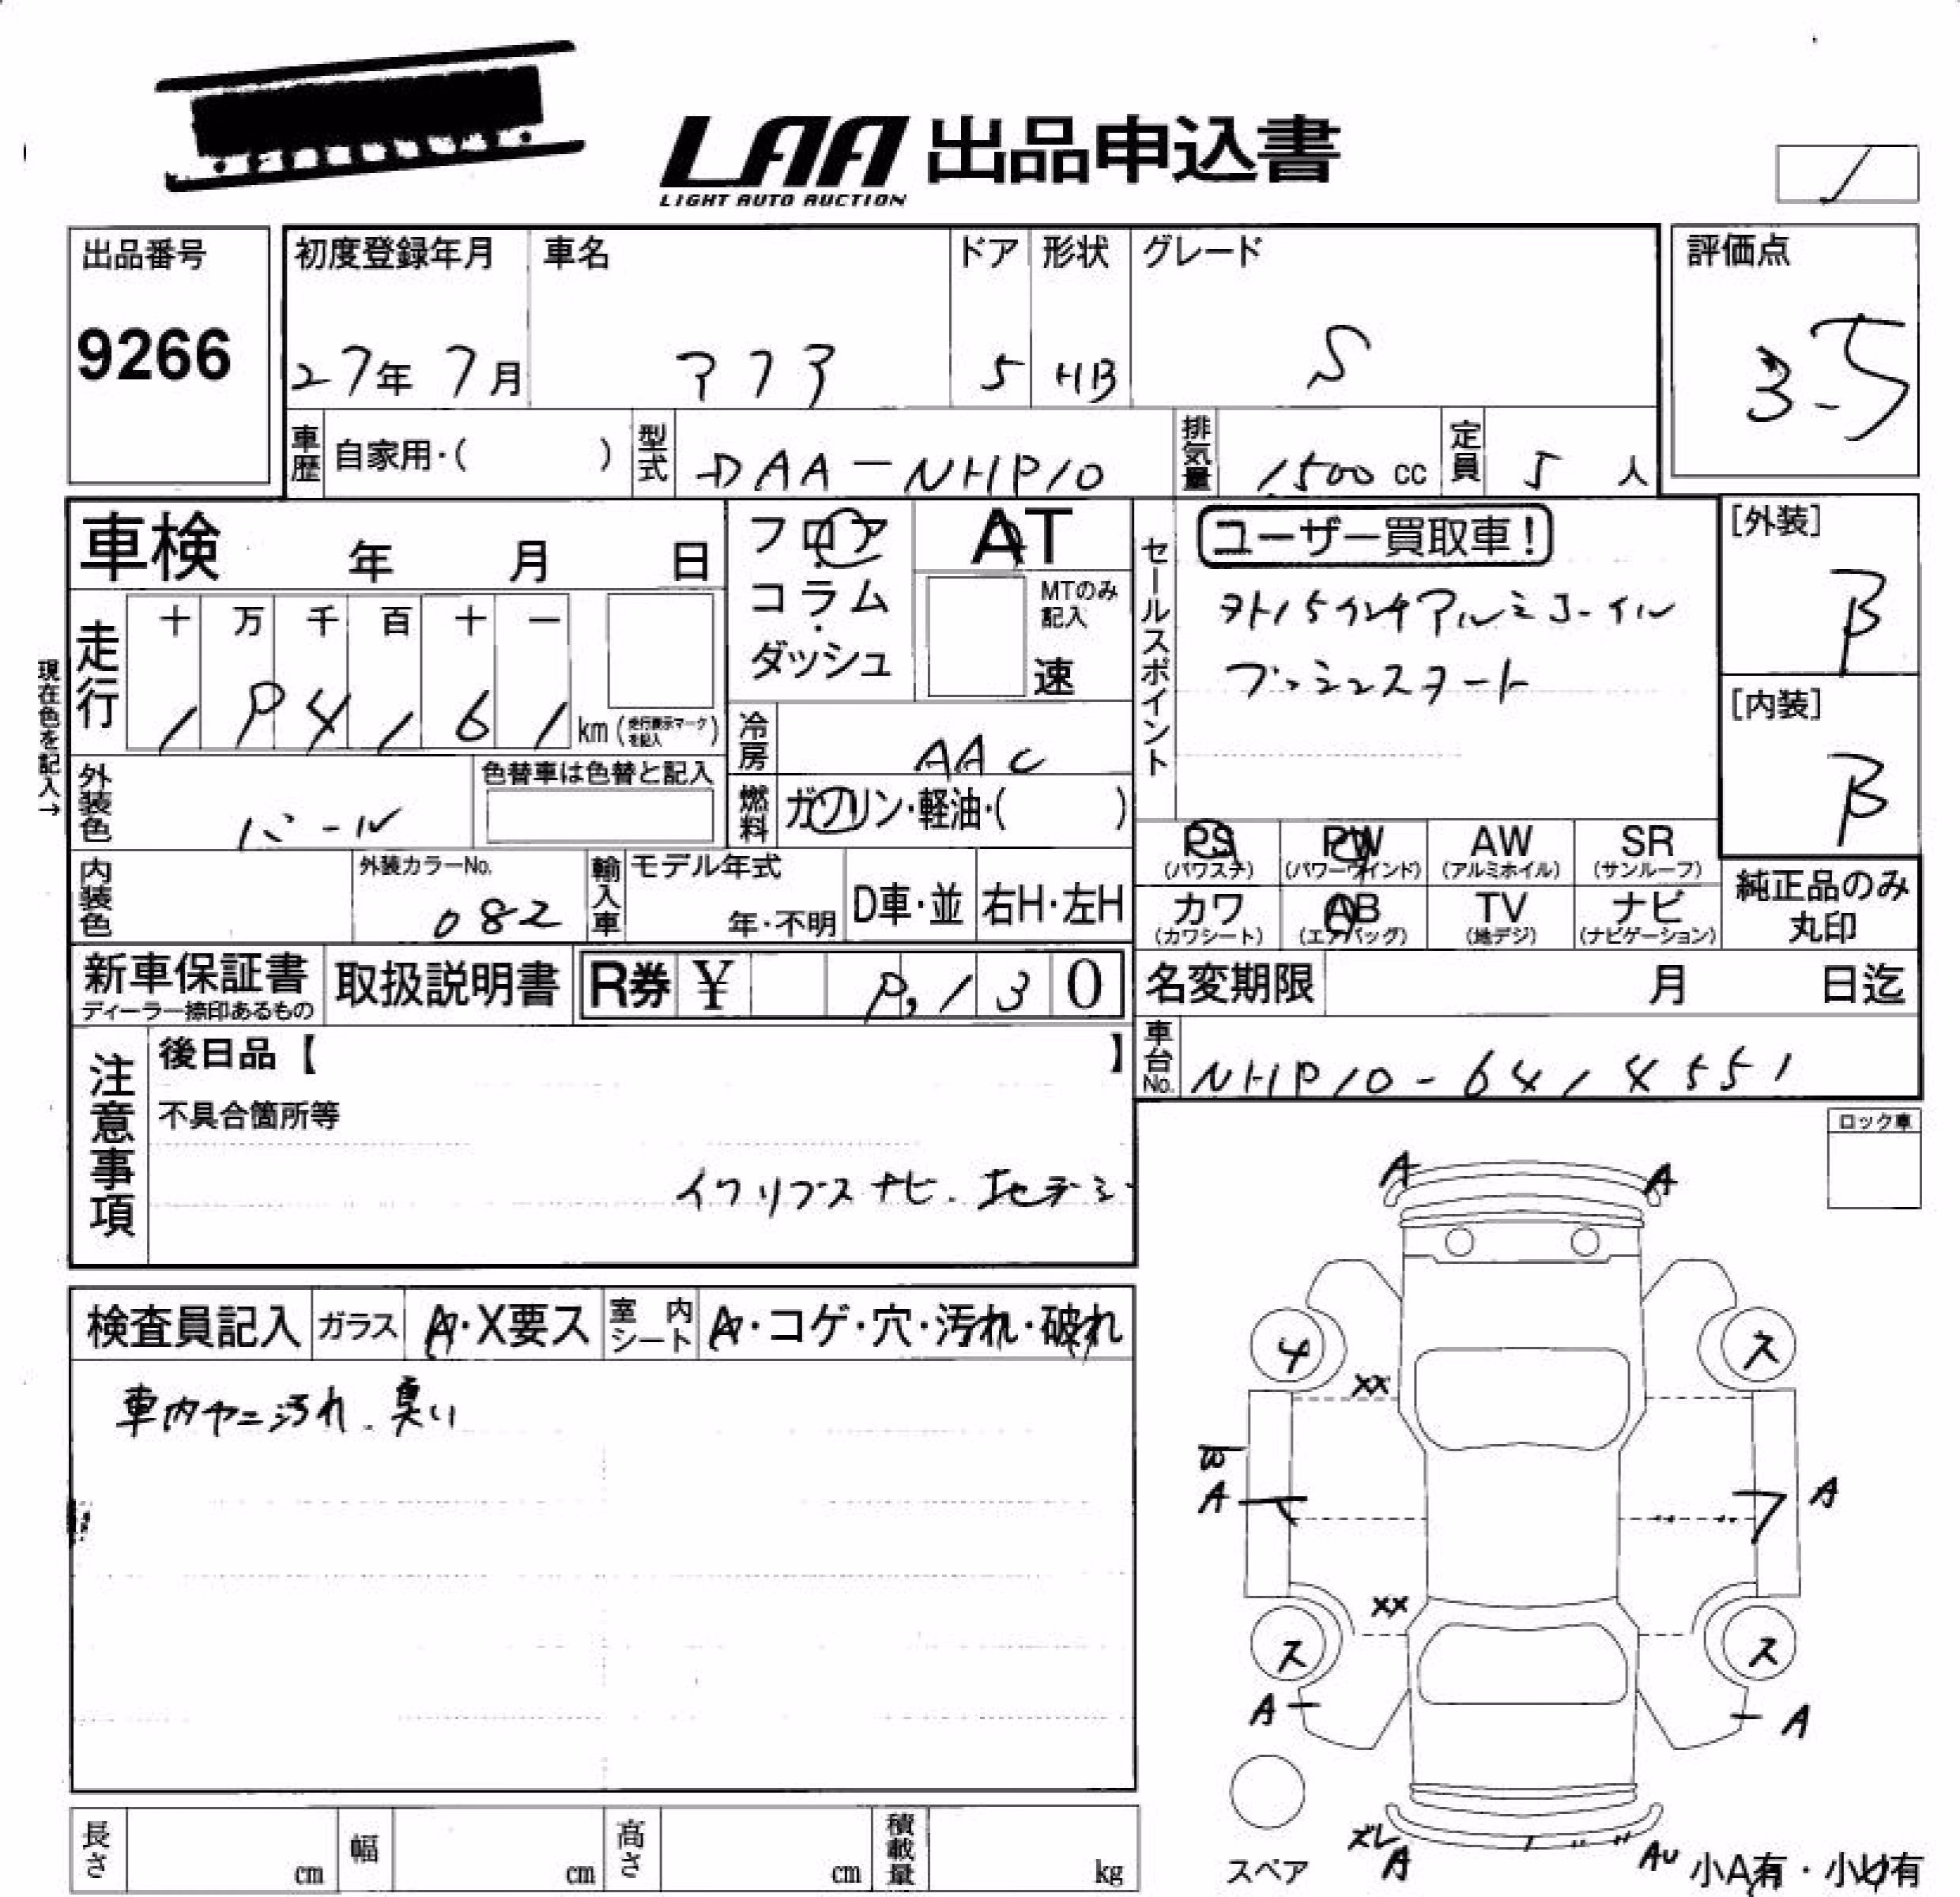 LAA 出品申込書
LIGHT AUTO AUCTION
出品番号
9266
初度登録年月
27年 7月
車名
アクア
ドア
5
形状
HB
グレード
S
評価点
3.5
車歴 自家用・( )
型式 DAA-NHP10
排気量 1500 cc
定員 5 人
車検 年 月 日
フロア
コラム
・
ダッシュ
AT
MTのみ
記入
速
セールスポイント
ユーザー買取車!
プッシュスタート
[外装]
B
[内装]
B
現在色を記入→
走行
十 万 千 百 十 一
km (走行表示マークを記入)
冷房 AAC
外装色 パール
色替車は色替と記入
燃料 ガソリン・軽油・( )
PS
(パワステ)
PW
(パワーウインド)
AW
(アルミホイル)
SR
(サンルーフ)
カワ
(カワシート)
AB
(エアバッグ)
TV
(地デジ)
ナビ
(ナビゲーション)
純正品のみ
丸印
内装色
外装カラーNo.
082
輸入車
モデル年式
年・不明
D車・並
右H・左H
新車保証書
ディーラー捺印あるもの
取扱説明書
R券 ¥
名変期限 月 日迄
車台No. NHP10-6414551
注意事項
後日品【 】
不具合箇所等
イクリプスナビ、地デジ
ロック車
検査員記入
ガラス A・X要ス
室内シート A・コゲ・穴・汚れ・破れ
車内ヤニ汚れ、臭い
A A
4 ス
XX
W
A A
XX
ス ス
A A
スペア
ズレ
A
AU
小A有・小U有
長さ cm
幅 cm
高さ cm
積載量 kg